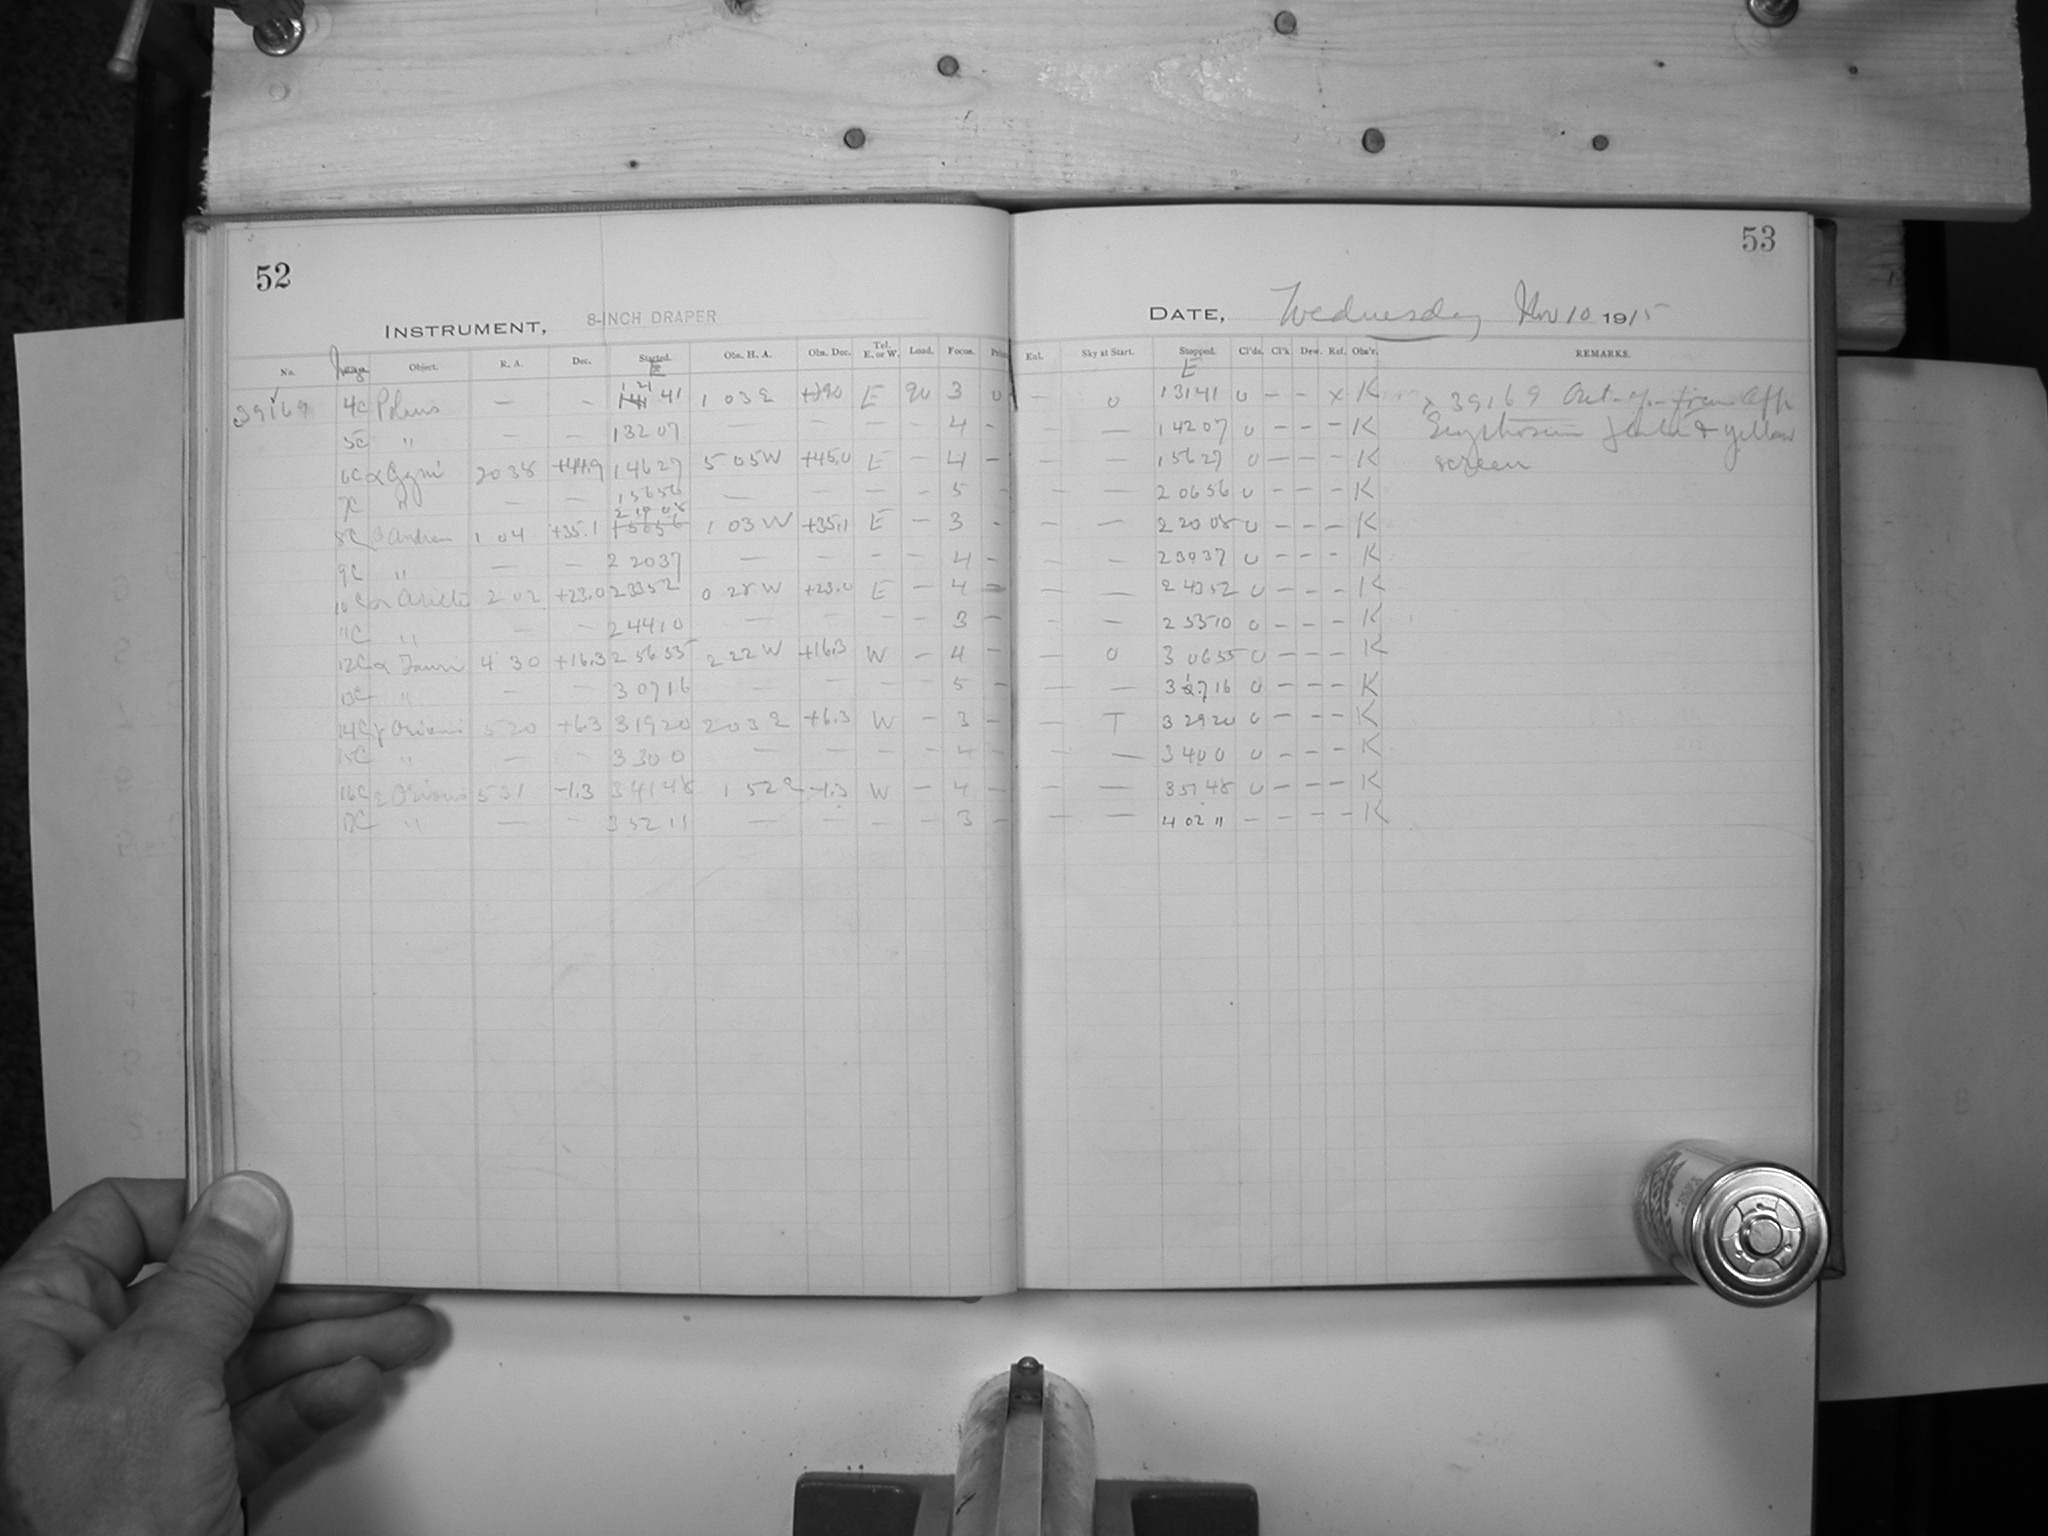 52
INSTRUMENT, 8-INCH DRAPER
No. Object. R. A. Dec. Started. Obs. H. A. Obs. Dec. Tel. E. or W. Load. Focus.
E
39169 4C Polaris — — 1 21 41 1 03 E +90 E 90 3 0
5C " — — 1 32 07 — — — — 4 -
6C α Cygni 20 38 +44.9 1 46 27 5 05 W +45.0 E — 4 -
7C " — — 1 56 56 — — — — 5 -
8C β Androm 1 04 +35.1 2 19 08 1 03 W +35.1 E — 3 -
9C " — — 2 20 37 — — — — 4 -
10C α Arietis 2 02 +23.0 2 33 52 0 28 W +23.0 E — 4 -
11C " — — 2 44 10 — — — — 3 -
12C α Tauri 4 30 +16.3 2 56 55 2 22 W +16.3 W — 4 -
13C " — — 3 07 16 — — — — 5 -
14C γ Orionis 5 20 +6.3 3 19 20 2 03 E +6.3 W — 3 -
15C " — — 3 30 0 — — — — 4 -
16C ε Orionis 5 31 -1.3 3 41 48 1 52 E -1.3 W — 4 -
17C " — — 3 52 11 — — — — 3 -
53
DATE, Wednesday Nov 10 1915
Enl. Sky at Start. Stopped. Cl'ds. Cl'k. Dew. Ref. Obs'r. REMARKS.
E
— 0 1 31 41 0 — — x K x 39169
— — 1 42 07 0 — — — K & yellow
— — 1 56 27 0 — — — K screen
— — 2 06 56 0 — — — K
— — 2 20 08 0 — — — K
— — 2 30 37 0 — — — K
— — 2 43 52 0 — — — K
— — 2 53 10 0 — — — K
— 0 3 06 55 0 — — — K
— — 3 17 16 0 — — — K
— T 3 29 20 0 — — — K
— — 3 40 0 0 — — — K
— — 3 51 48 0 — — — K
— — 4 02 11 — — — — K